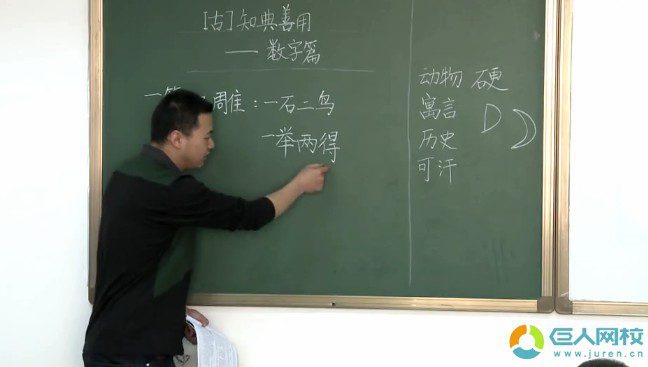 [古]知典善用
——数字篇
周隹:一石二鸟
一举两得
动物 硬
寓言
历史
可汗
巨人网校
www.juren.cn